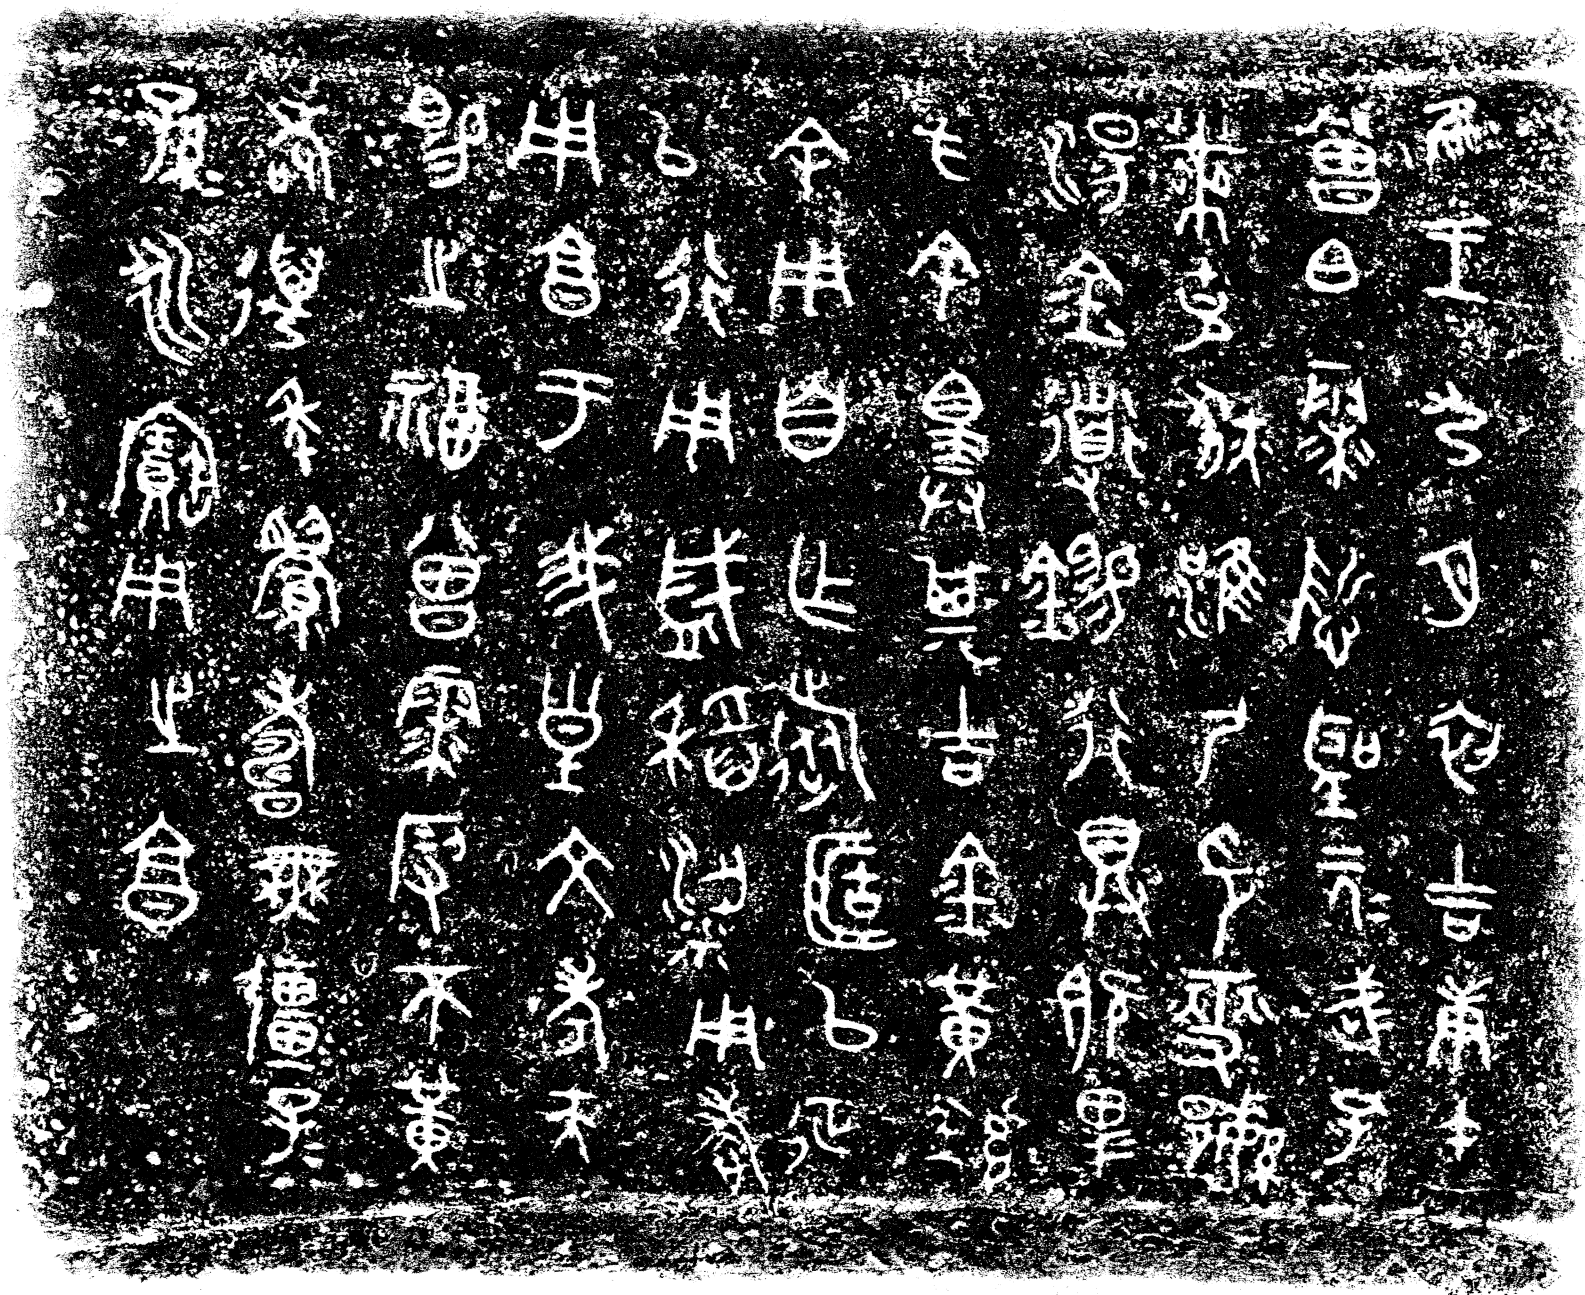 隹王九月初吉庚午
曾白霖哲聖元＝武＝孔
黹克狄淮尸印燮繁
湯金道錫行具既卑
方余擇其吉金黃鑪
余用自乍旅𠤳以征
以行用盛稻粱用孝
用亯于我皇文考天
賜之福曾霖叚不黃
耇邁年眉壽無疆子＝
孫＝永寶用之亯